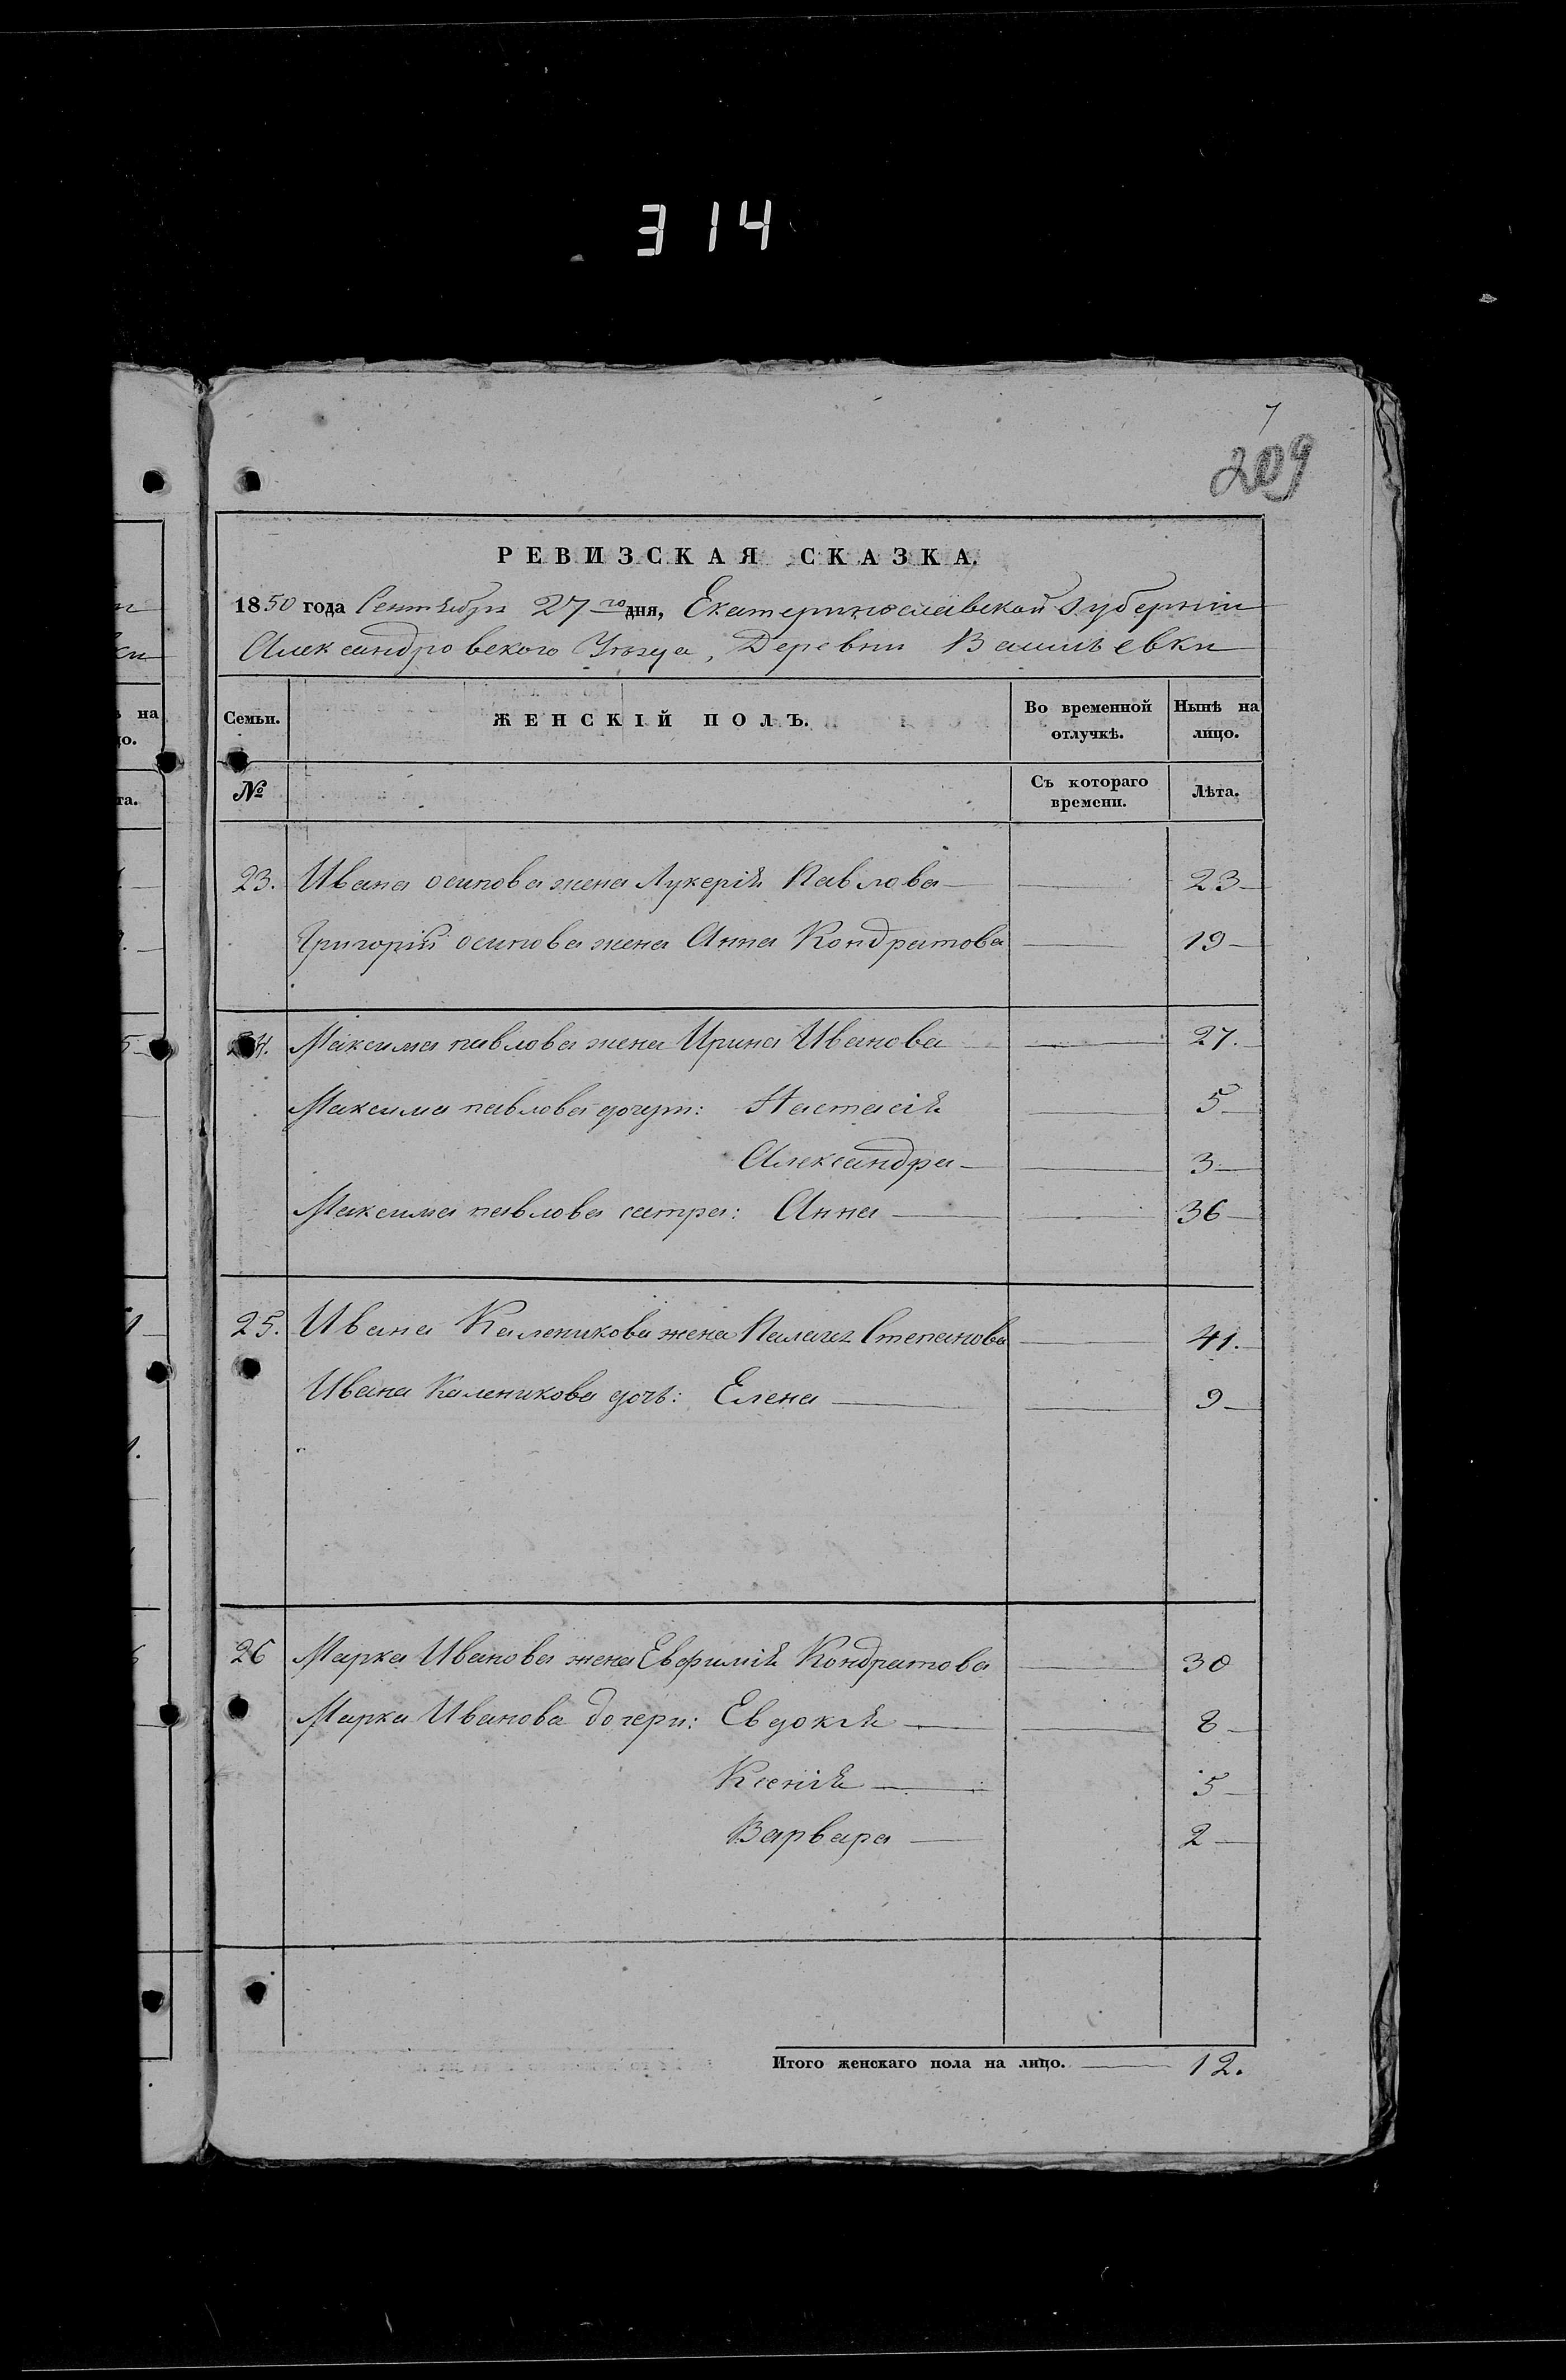 314
7
209
РЕВИЗСКАЯ СКАЗКА.
1850 года Сентября 27го дня, Екатеринославской Губернии
Александровского Уѣзда, Деревни Васильевки
Семьи. ЖЕНСКІЙ ПОЛЪ. Во временной отлучкѣ. Нынѣ на лицо.
№ Съ котораго времени. Лѣта.
23. Ивана осипова жена Лукерія Павлова 23
Григорія осипова жена Анна Кондратова 19
24. Максима павлова жена Ирина Иванова 27.
Максима павлова дочери: Настасія 5
Александра 3
Максима павлова систра: Анна 36
25. Ивана Каленикова жена Палагея Степанова 41.
Ивана Каленикова дочь: Елена 9
26 Марка Иванова жена Евфимія Кондратова 30
Марка Иванова дочери: Евдокія 8
Ксенія 5
Варвара 2
Итого женскаго пола на лицо. 12.